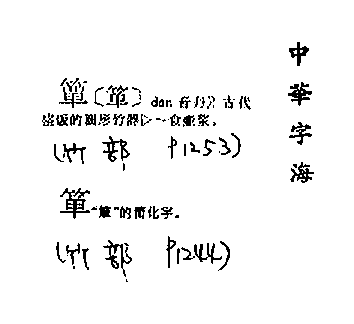 中華字海
簞〔箪〕dan 音丹 古代
盛饭的圆形竹器▷~食壶浆。
(竹部 P1253)
箪"簞"的简化字。
(竹部 P1244)